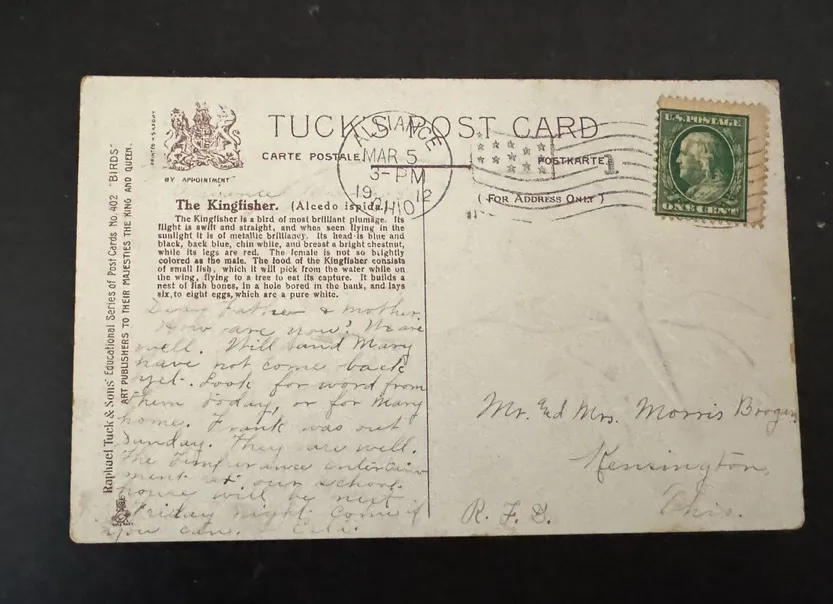 TUCK'S POST CARD
CARTE POSTALE
POSTKARTE
BY APPOINTMENT
(FOR ADDRESS ONLY)
ALLIANCE
MAR 5
3-PM
1912
OHIO
1
U.S. POSTAGE
ONE CENT
Raphael Tuck & Sons' Educational Series of Post Cards No. 402 "BIRDS"
ART PUBLISHERS TO THEIR MAJESTIES THE KING AND QUEEN.
The Kingfisher. (Alcedo ispida.)
The Kingfisher is a bird of most brilliant plumage. Its
flight is swift and straight, and when seen flying in the
sunlight it is of metallic brilliancy. Its head is blue and
black, back blue, chin white, and breast a bright chestnut,
while its legs are red. The female is not so brightly
colored as the male. The food of the Kingfisher consists
of small fish, which it will pick from the water while on
the wing, flying to a tree to eat its capture. It builds a
nest of fish bones, in a hole bored in the bank, and lays
six to eight eggs, which are a pure white.
Dear Father & Mother.
How are you? We are
well. Will and Mary
have not come back
yet. Look for word from
them today, or for Mary
home. Frank was out
Sunday. They are well.
The Temperance entertain
ment at our school
house will be next
Friday night. Come if
you can.
Mr. and Mrs. Morris Brogan
Kensington,
R. F. D.
Ohio.